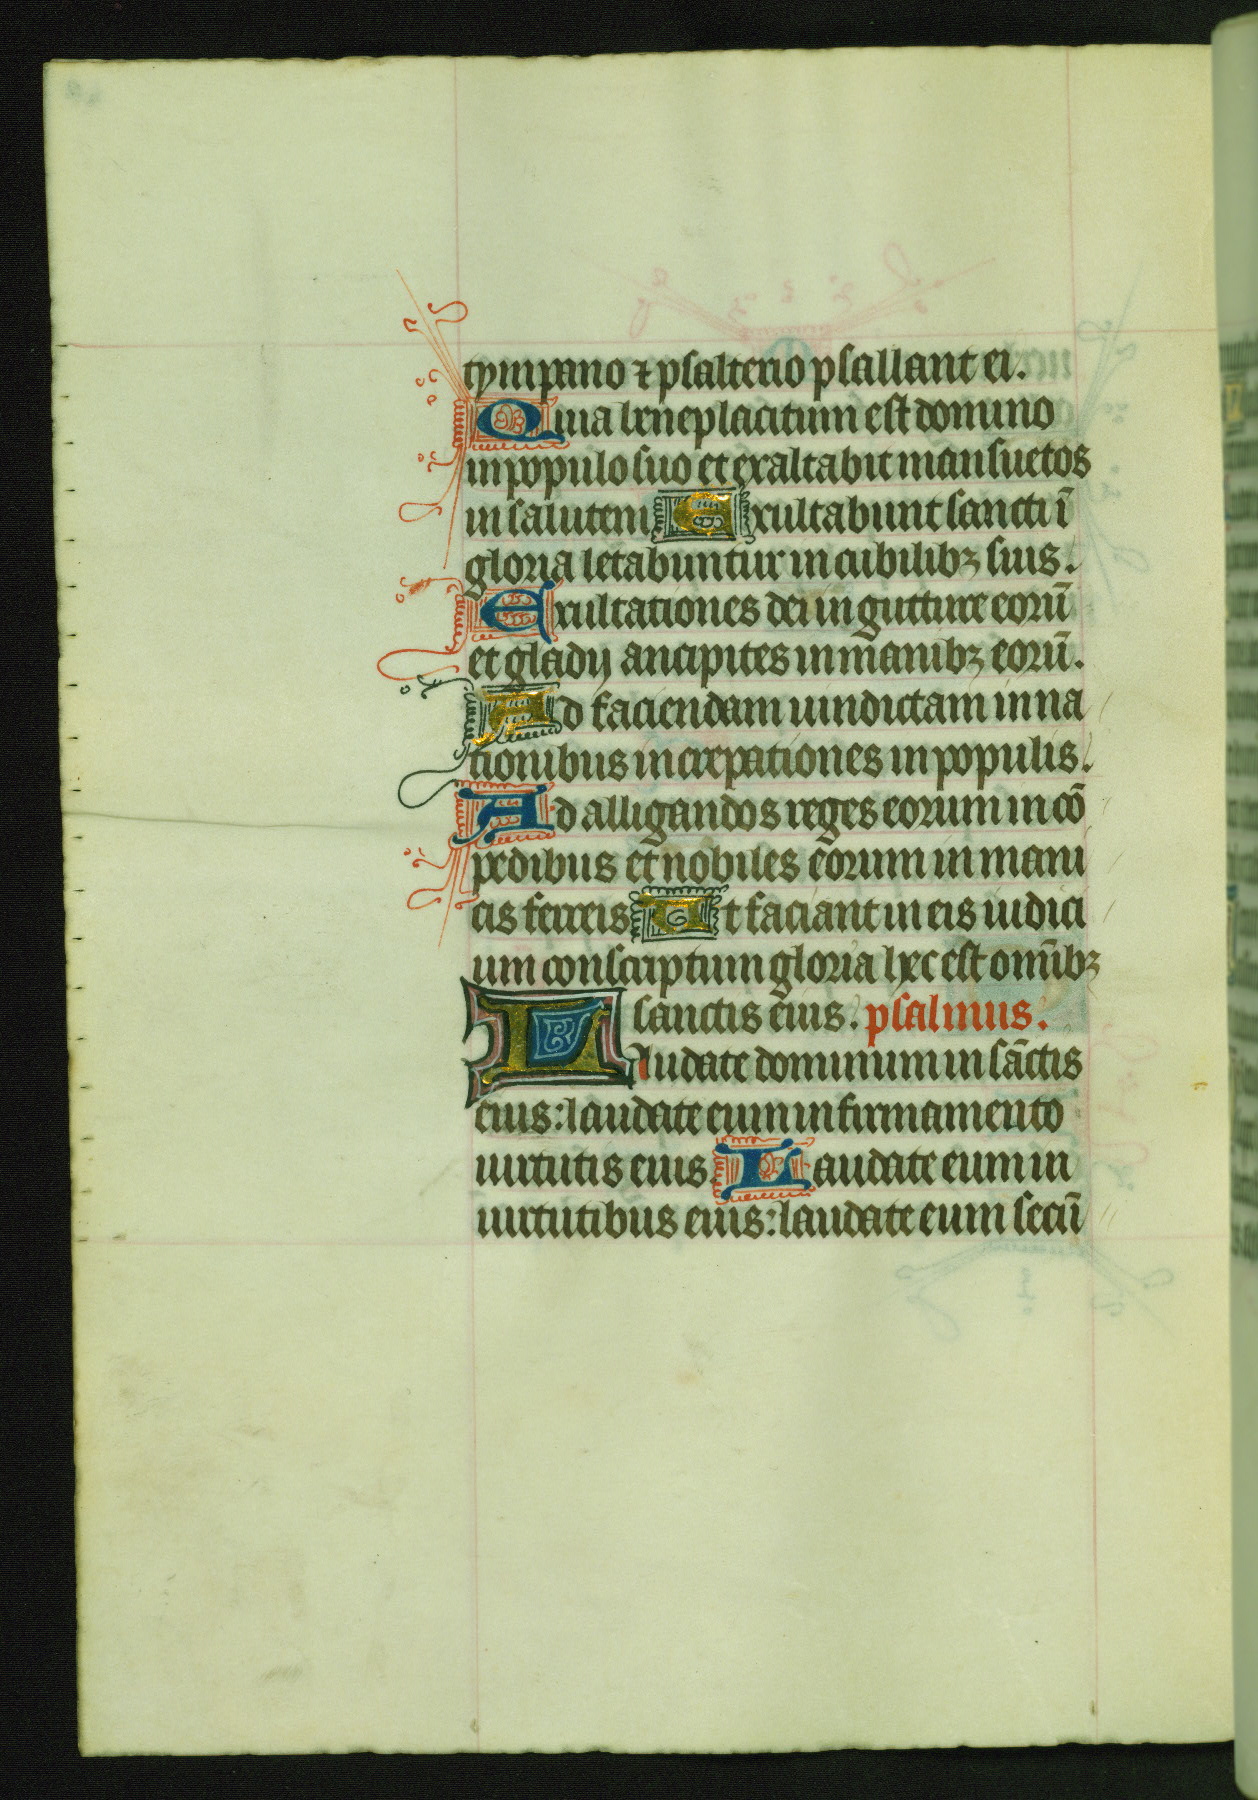 tympano ⁊ psalterio psallant ei.
Quia beneplacitum est domino
in populo suo et exaltabit mansuetos
in salutem. Exultabunt sancti ī
gloria letabuntur in cubilibꝫ suis.
Exultationes dei in gutture eorū
et gladij ancipites in manibꝫ eorū.
Ad faciendam uindictam in na
tionibus increpationes in populis.
Ad alligandos reges eorum in cō
pedibus et nobiles eorum in mani
cis ferreis. Ut faciant in eis iudici
um conscriptum gloria hec est om̄ibꝫ
sanctis eius. psalmus.
Laudate dominum in sāctis
eius: laudate eum in firmamento
uirtutis eius. Laudate eum in
uirtutibus eius: laudate eum secū